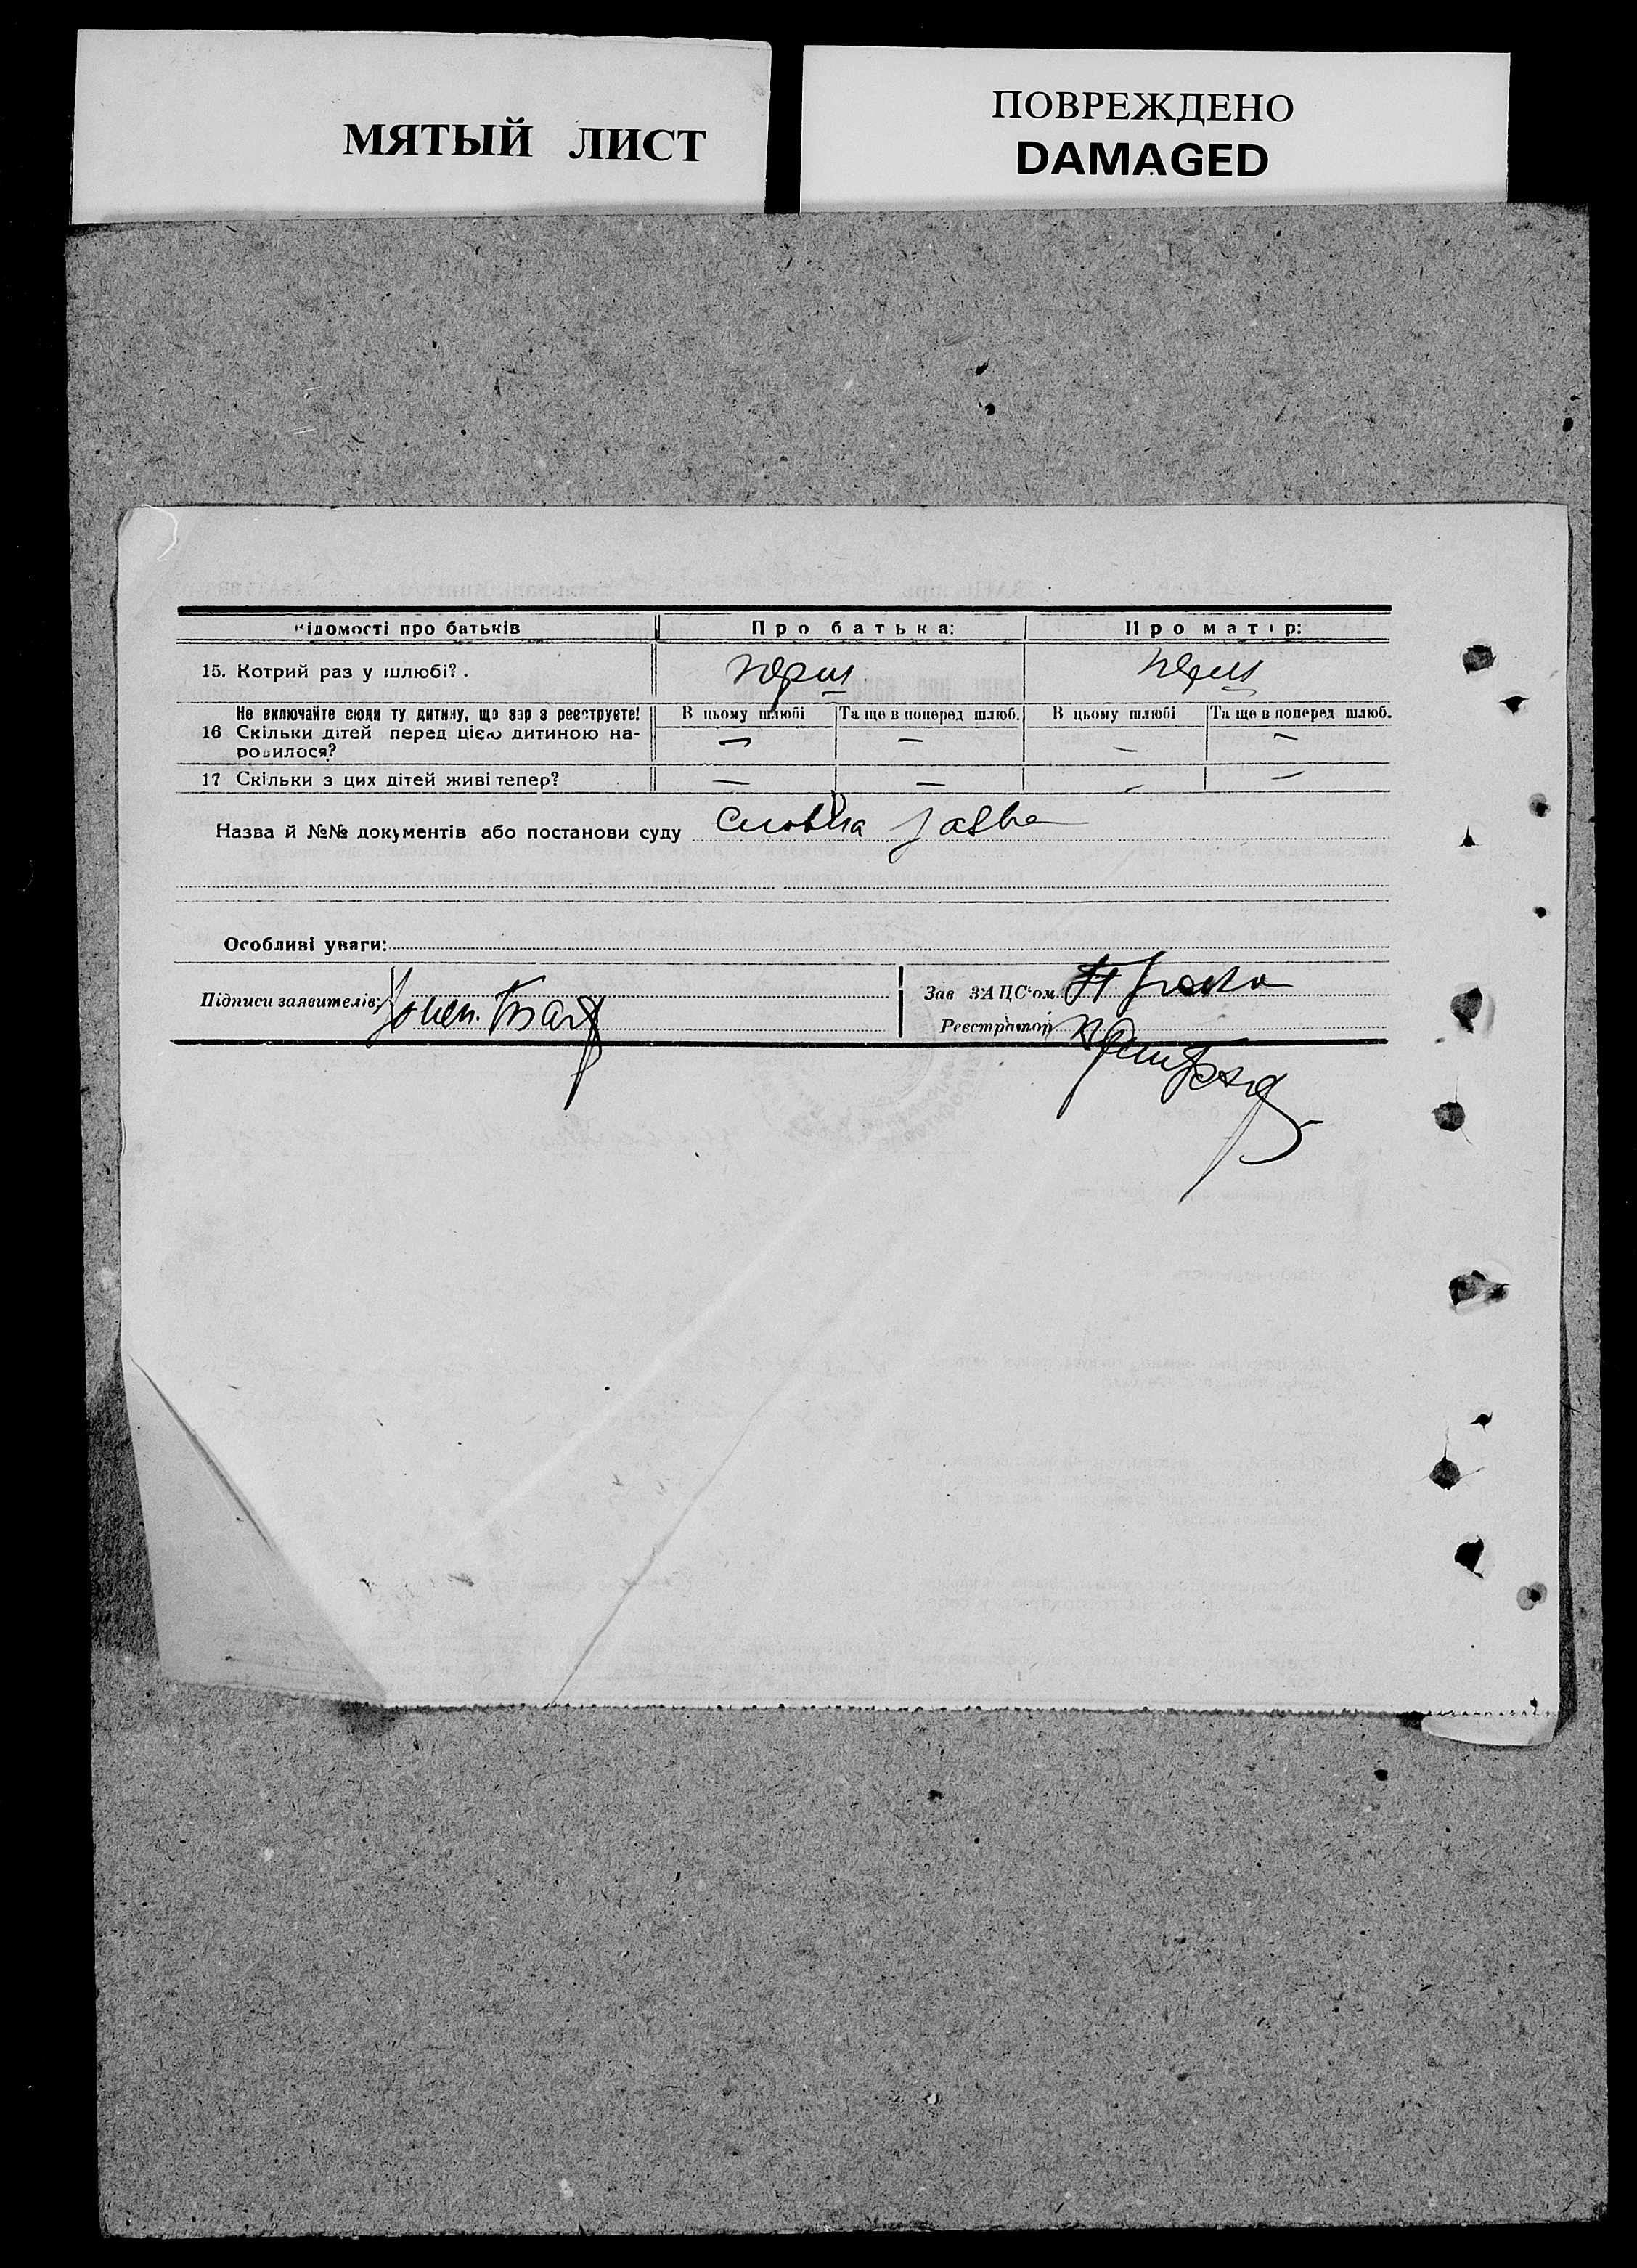 МЯТЫЙ ЛИСТ
ПОВРЕЖДЕНО
DAMAGED
Відомості про батьків Про батька: Про матір:
15. Котрий раз у шлюбі? . перш перш
Не включайте сюди ту дитину, що зараз реєструєте! В цьому шлюбі Та ще в поперед шлюб. В цьому шлюбі Та ще в поперед шлюб.
16 Скільки дітей перед цією дитиною на- — — — —
родилося?
17 Скільки з цих дітей живі тепер? — — — —
Назва й №№ документів або постанови суду Словна заява
Особливі уваги:
Підписи заявителів:
Зав ЗАЦС'ом
Реєстратор